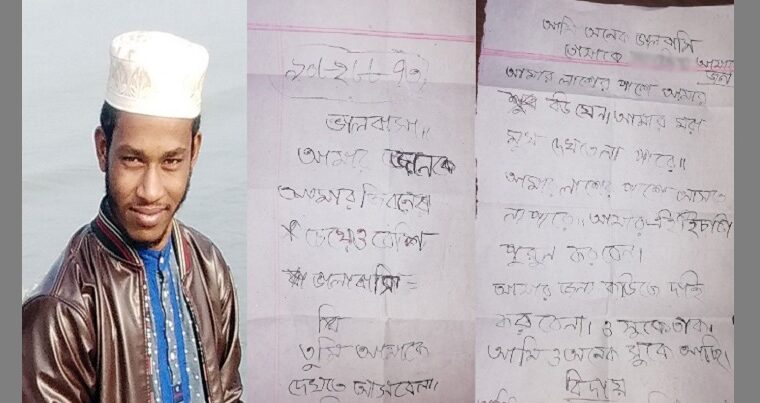 ভালবাসা॥
আমার জানকে
আমার জিবনের
চেয়েও বেশি
ভালোবাসি
প্রি
তুমি আমাকে
দেখতে আসবেনা।
আমি অনেক ভালবাসি
তোমাকে আমার
জান
আমার লাশের পাশে আমার
বউ যেন। আমার মরা
মুখ দেখতেনা পারে॥
আমার লাশের পাশে আসতে
না পারে॥ আমার এই ইচ্ছাটা
পুরুন করবেন।
আমার জন্য কাউকে দায়ি
করবেনা। ও সুকে থাক।
আমি ও অনেক সুকে আছি।
বিদায়